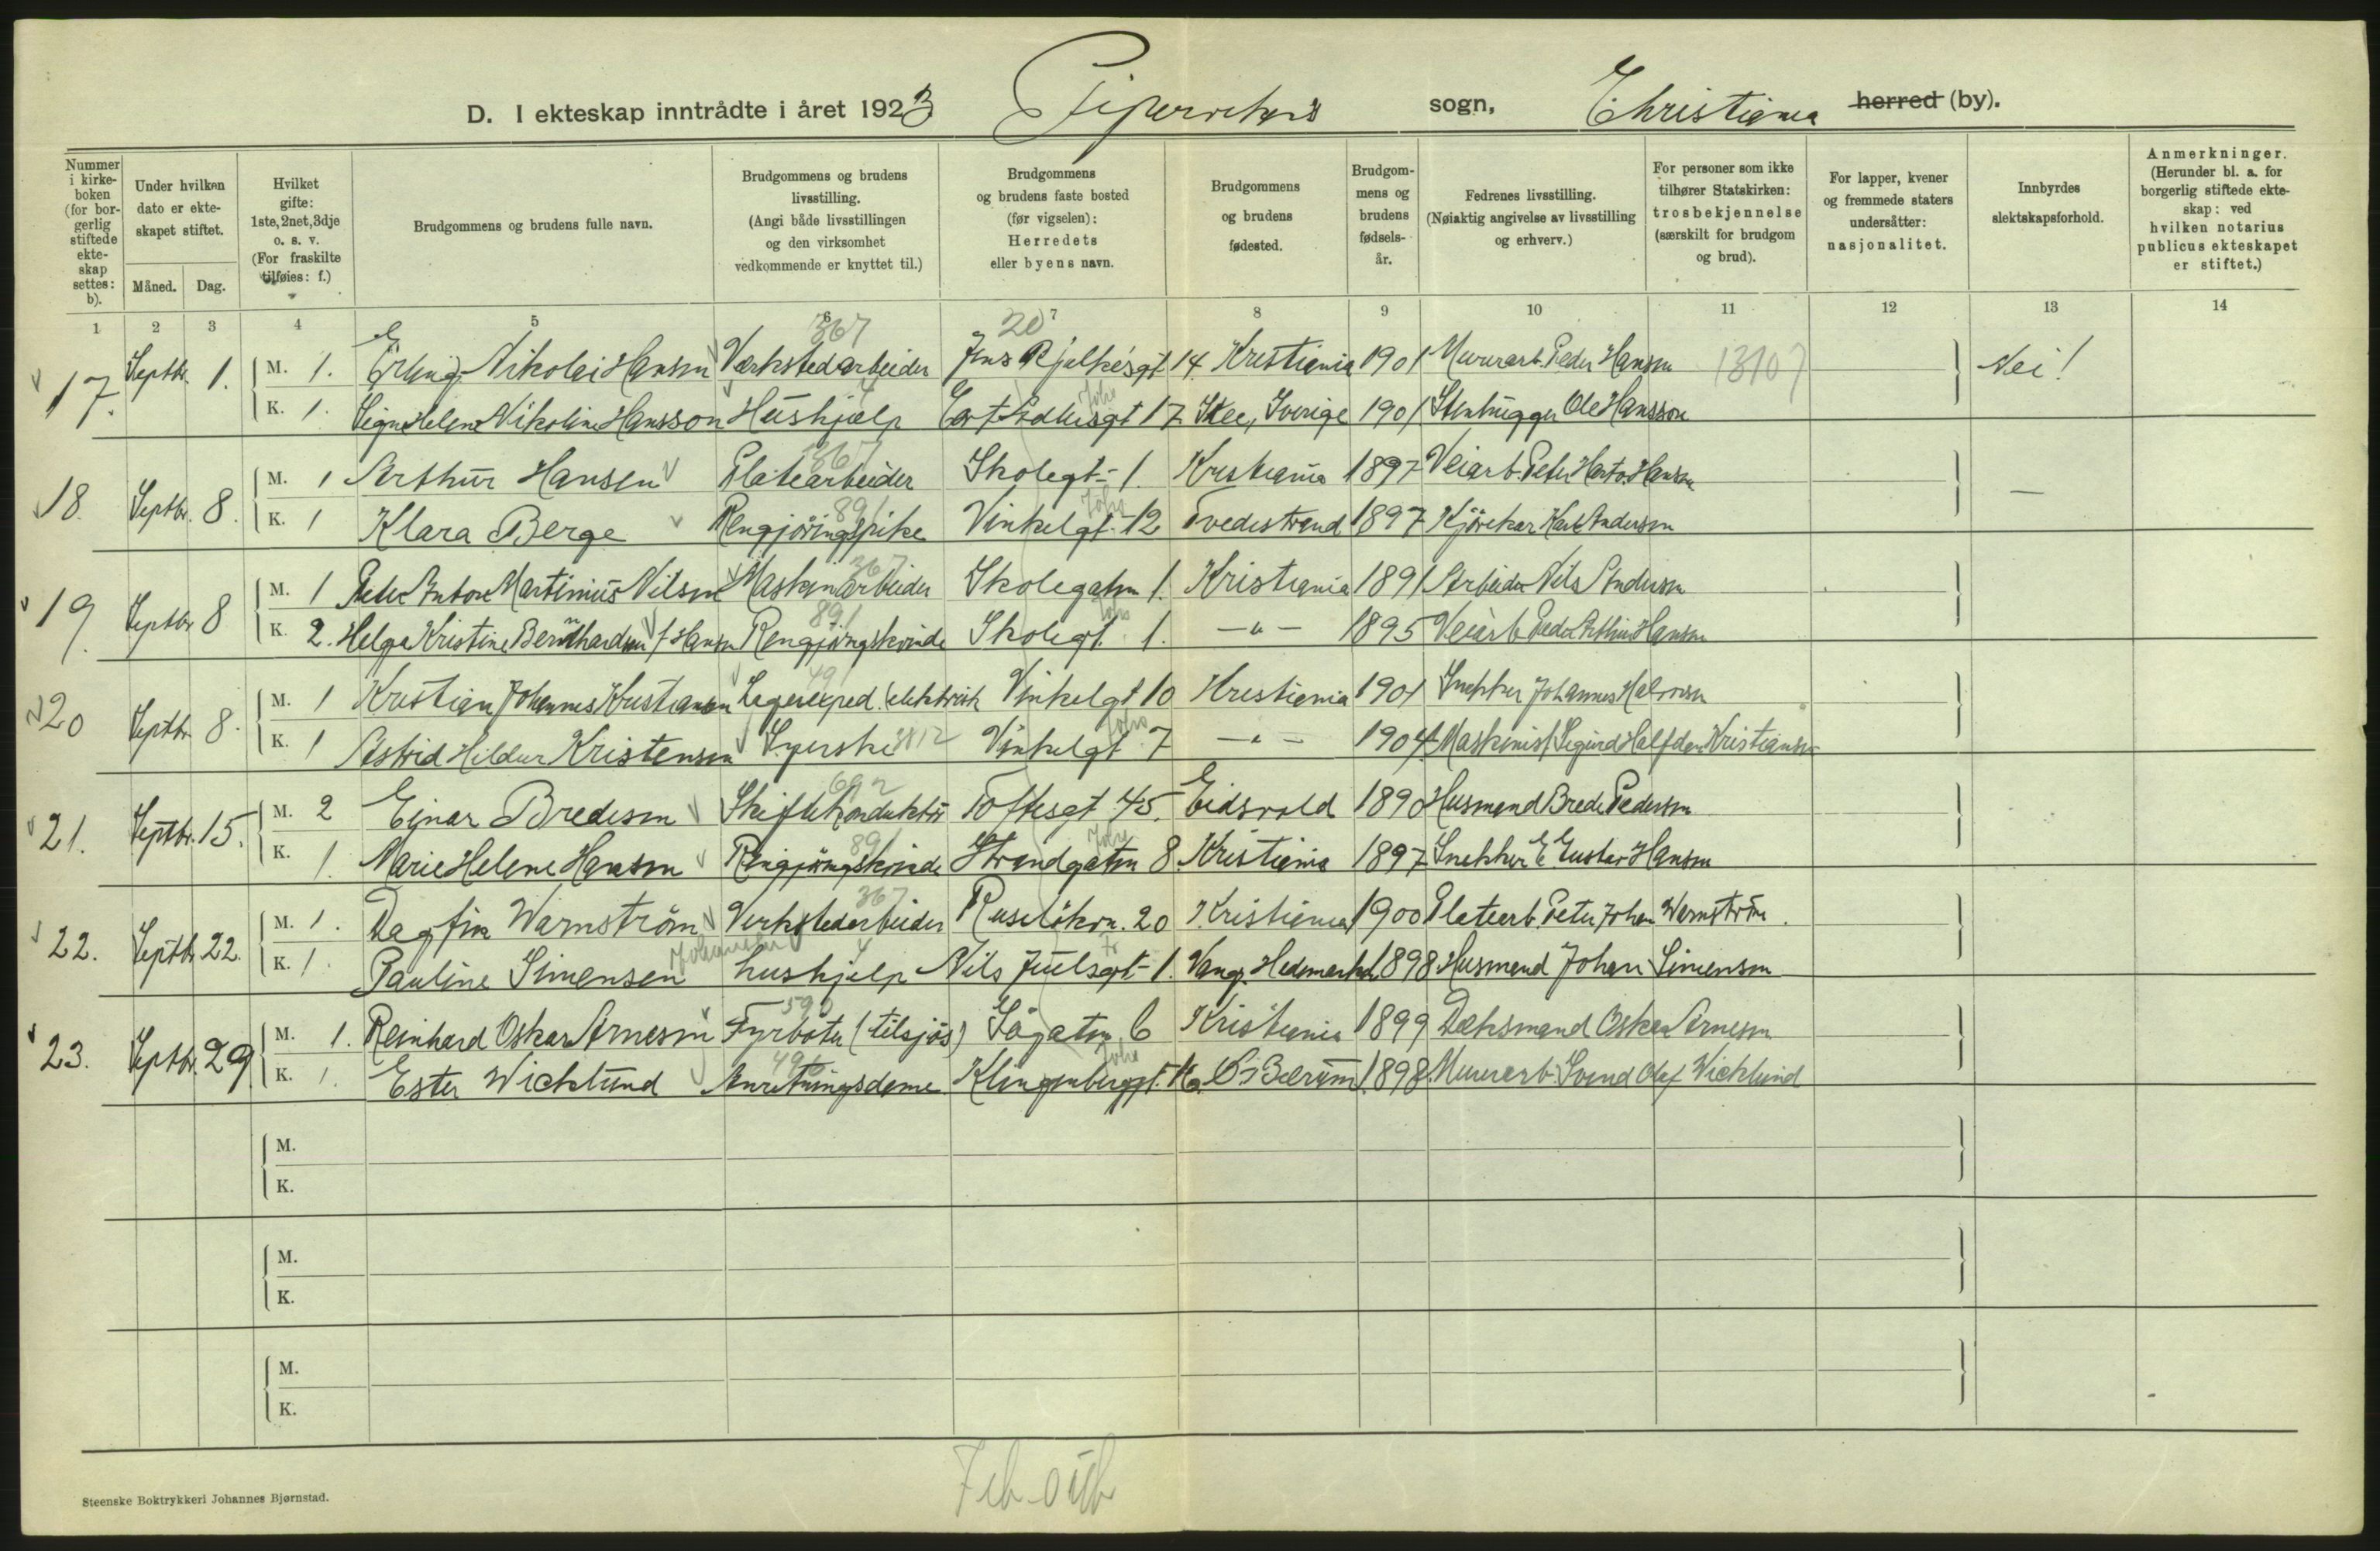 D. I ekteskap inntrådte i året 1923 Pipervikens sogn, Christiania herred (by).
Nummer i kirkeboken (for borgerlig stiftede ekteskap settes: b).
Under hvilken dato er ekteskapet stiftet.
Måned. Dag.
Hvilket gifte: 1ste, 2net, 3dje o. s. v. (For fraskilte tilføies: f.)
Brudgommens og brudens fulle navn.
Brudgommens og brudens livsstilling. (Angi både livsstillingen og den virksomhet vedkommende er knyttet til.)
Brudgommens og brudens faste bosted (før vigselen): Herredets eller byens navn.
Brudgommens og brudens fødested.
Brudgommens og brudens fødselsår.
Fedrenes livsstilling. (Nøiaktig angivelse av livsstilling og erhverv.)
For personer som ikke tilhører Statskirken: trosbekjennelse (særskilt for brudgom og brud).
For lapper, kvener og fremmede staters undersåtter: nasjonalitet.
Innbyrdes slektskapsforhold.
Anmerkninger. (Herunder bl. a. for borgerlig stiftede ekteskap: ved hvilken notarius publicus ekteskapet er stiftet.)
1 2 3 4 5 6 7 8 9 10 11 12 13 14
367 20
17. Septbr. 1. M. 1. Erling Nikolai Hansen Værkstedarbeider Jens Bjelkesgt 14. Kristiania 1901 Murerarb. Peder Hansen 13107 Nei!
K. 1. Signe Helene Nikoline Hansson Hushjælp 17 Skee, Sverige 1901 Stenhugger Ole Hansson
367
18. Septbr. 8. M. 1 Arthur Hansen Platearbeider Skolegt. 1. Kristiania 1897 Veiarb. Peter Hansen —
891
K. 1 Klara Berge Rengjöringspike Vinkelgt. 12 Tvedestrand 1897 Kjörekar Karl Andersen
367
19. Septbr 8 M. 1 Peder Anton Martinius Nilsen Maskinarbeider Skolegaten 1. Kristiania 1891 Arbeider Nils Andersen
891
K. 2. Helga Kristine Bernhardsen f. Hansen Rengjöringskvinde Skolegt. 1. —"— 1895 Veiarb Peder Arthur Hansen
491
20 Septbr. 8. M. 1 Kristian Johannes Kristiansen Lagerexped. (elektrisk Vinkelgt 10 Kristiania 1901 Snekker Johannes Halvorsen
K. 1 Astrid Hildur Kristensen Syerske 3812 Vinkelgt 7 —"— 1904 Maskinist Sigurd Halfdan Kristiansen
692
21. Septbr. 15. M. 2 Ejnar Bredesen Skiftekonduktör Toftesgt 45. Eidsvold 1890 Husmand Brede Pedersen
891
K. 1. Marie Helene Hansen Rengjöringskvinde Strandgaten 8. Kristiania 1897 Snekker E. Gustav Hansen
367
22. Septbr. 22. M. 1. Dagfin Warnström Verkstedarbeider Ruselökvn. 20 Kristiania 1900 Platearb. Peter Johan Warnström.
Johannesen 4
K. 1. Pauline Simensen hushjelp Nils Juelsgt. 1. Vang, Hedemarken 1898 Husmand Johan Simensen
590
23. Septbr. 29 M. 1. Reinhard Oskar Arnesen Fyrböter (tilsjös) Sögaten 6 Kristiania 1899 Dæksmand Oskar Arnesen
496
K. 1. Ester Wicklund Anretningsdame Klingenberggt. Bærum 1898 Murerarb. Svend Olaf Wicklund
M.
K.
M.
K.
M.
K.
Steenske Boktrykkeri Johannes Bjørnstad.